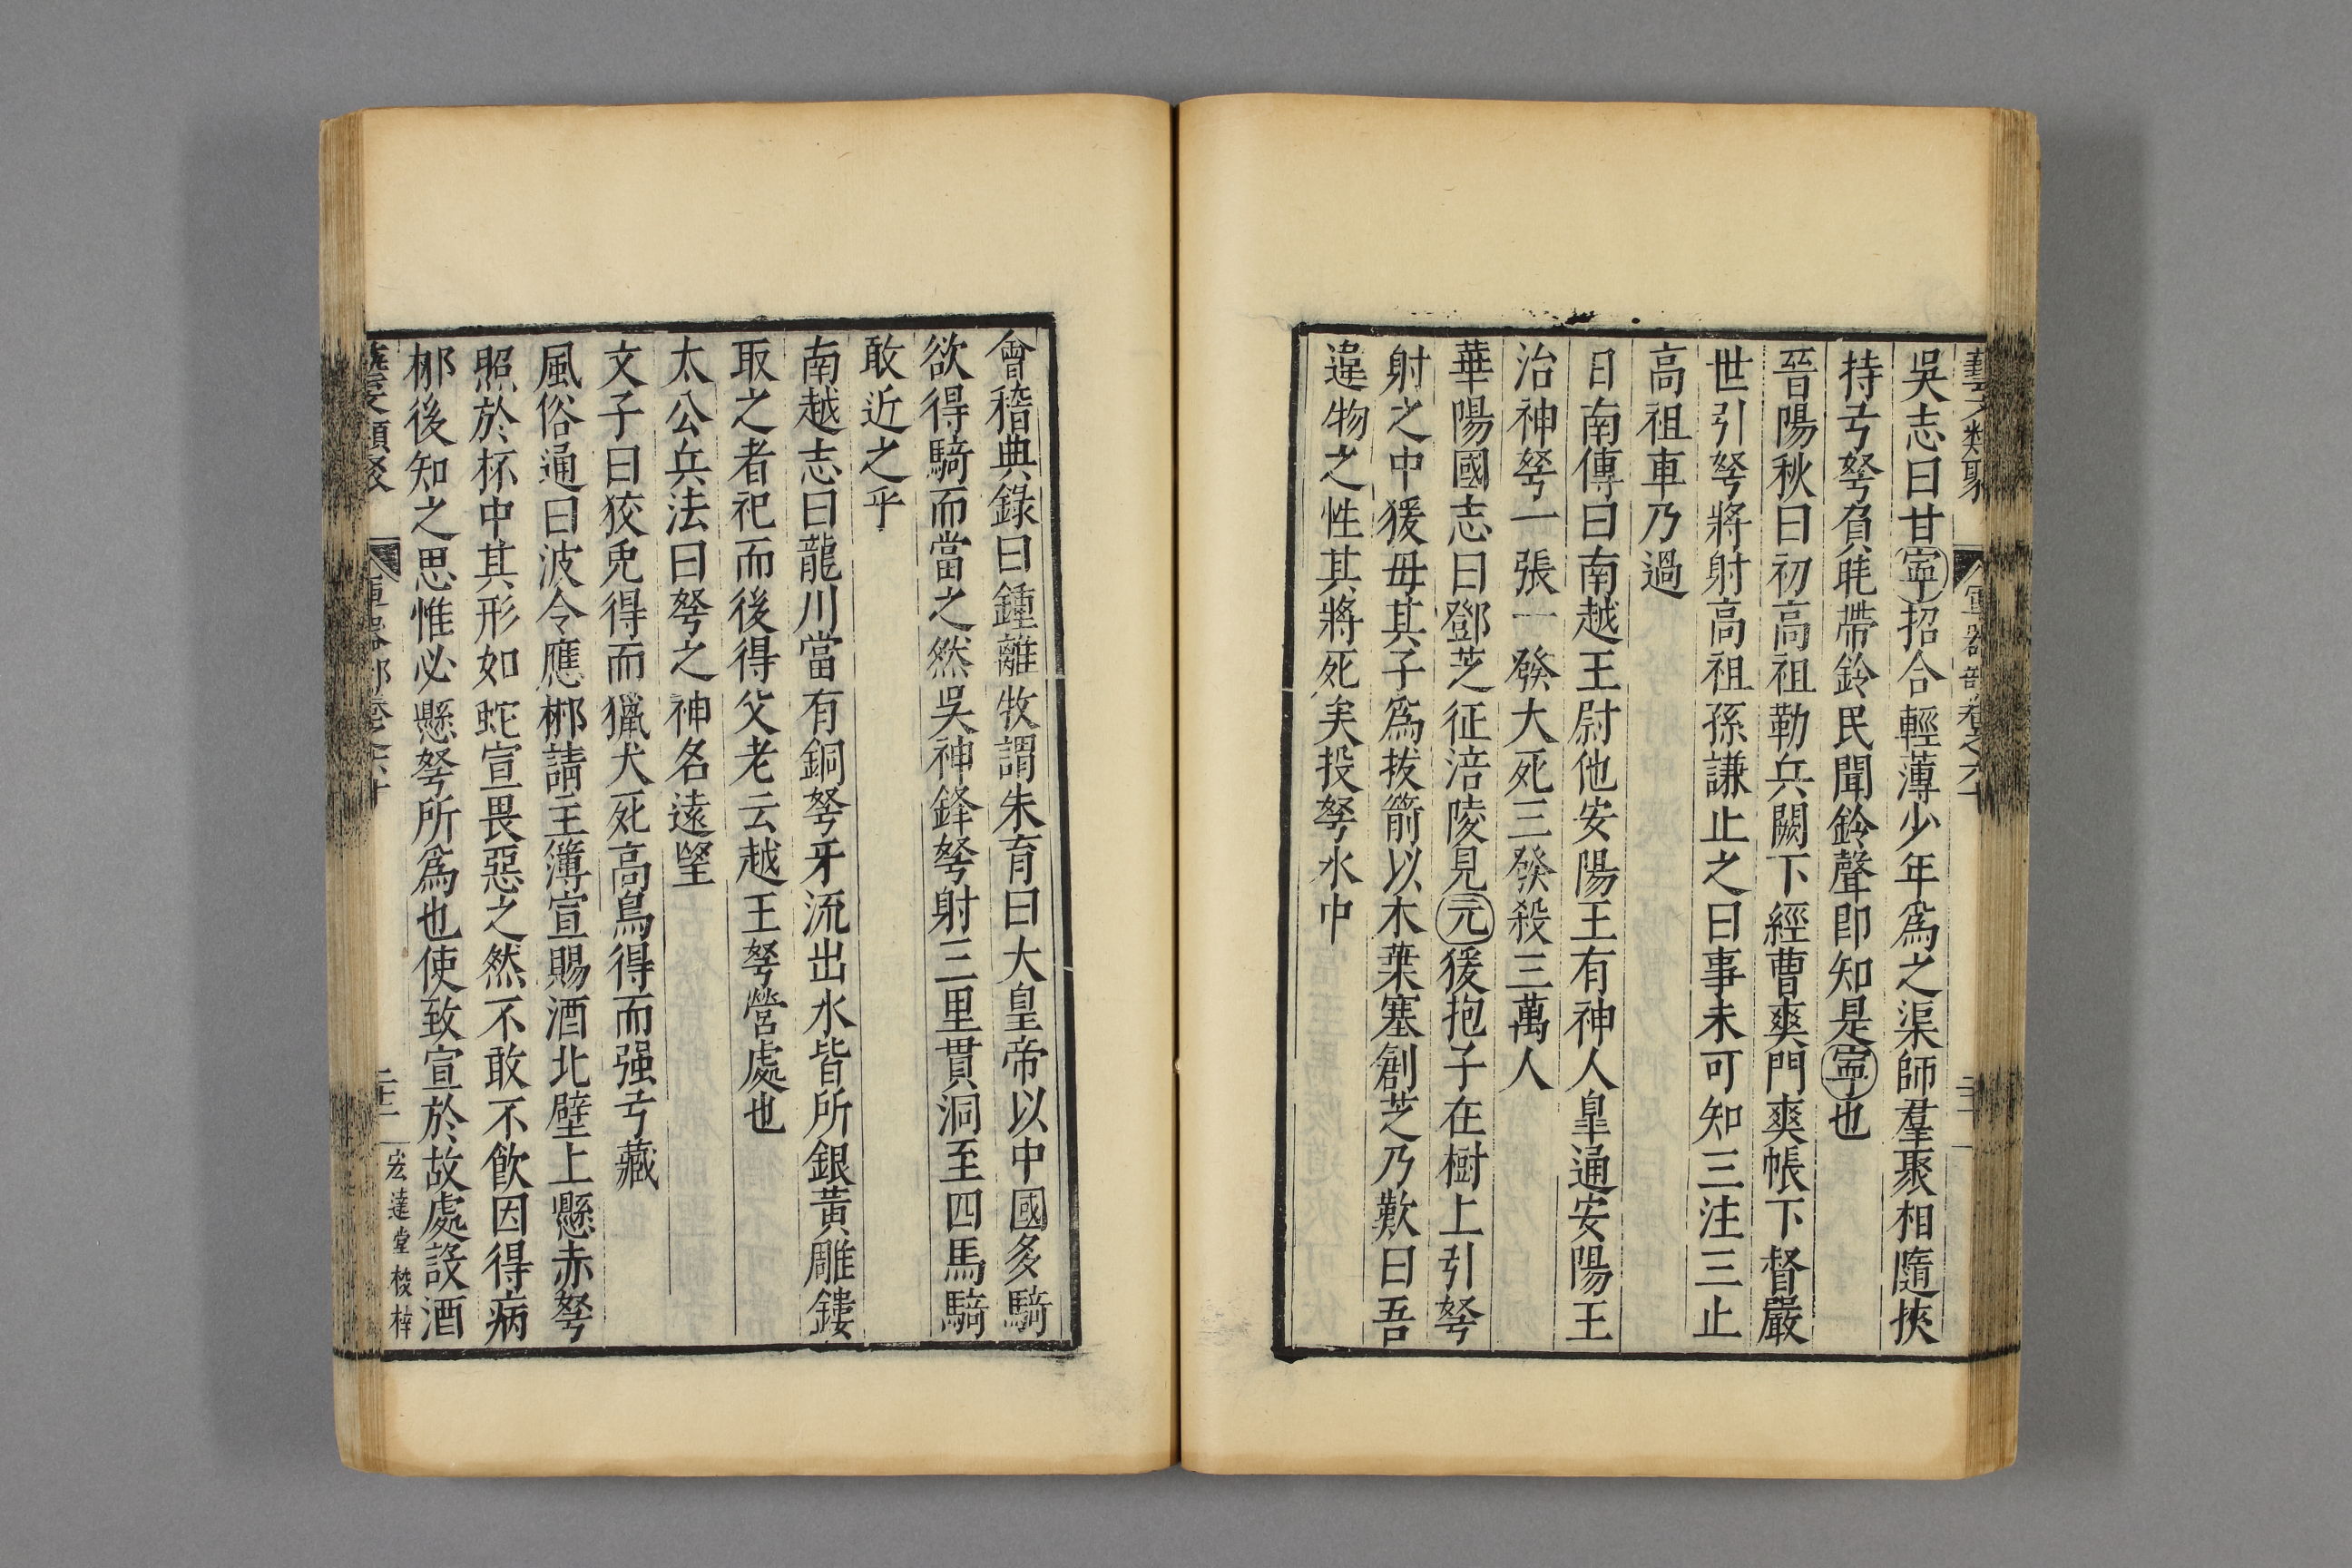 藝文類聚 軍器部卷之六十
吳志曰甘寧招合輕薄少年爲之渠師羣聚相隨挾
持弓弩負毦帶鈴民聞鈴聲即知是寧也
晉陽秋曰初高祖勒兵闕下經曹爽門爽帳下督嚴
世引弩將射高祖孫謙止之曰事未可知三注三止
高祖車乃過
日南傳曰南越王尉他安陽王有神人臯通安陽王
治神弩一張一發大死三發殺三萬人
華陽國志曰鄧芝征涪陵見元猨抱子在樹上引弩
射之中猨毋其子爲拔箭以木葉塞創芝乃歎曰吾
違物之性其將死矣投弩水中
會稽典錄曰鍾離牧謂朱育曰大皇帝以中國多騎
欲得騎而當之然吳神鋒弩射三里貫洞至四馬騎
敢近之乎
南越志曰龍川當有銅弩牙流出水皆所銀黃雕鏤
取之者祀而後得父老云越王弩營處也
太公兵法曰弩之神名遠望
文子曰狡兔得而獵犬死高鳥得而强弓藏
風俗通曰波令應郴請主簿宣賜酒北壁上懸赤弩
照於杯中其形如蛇宣畏惡之然不敢不飮因得病
郴後知之思惟必懸弩所爲也使致宣於故處設酒
宏達堂校梓